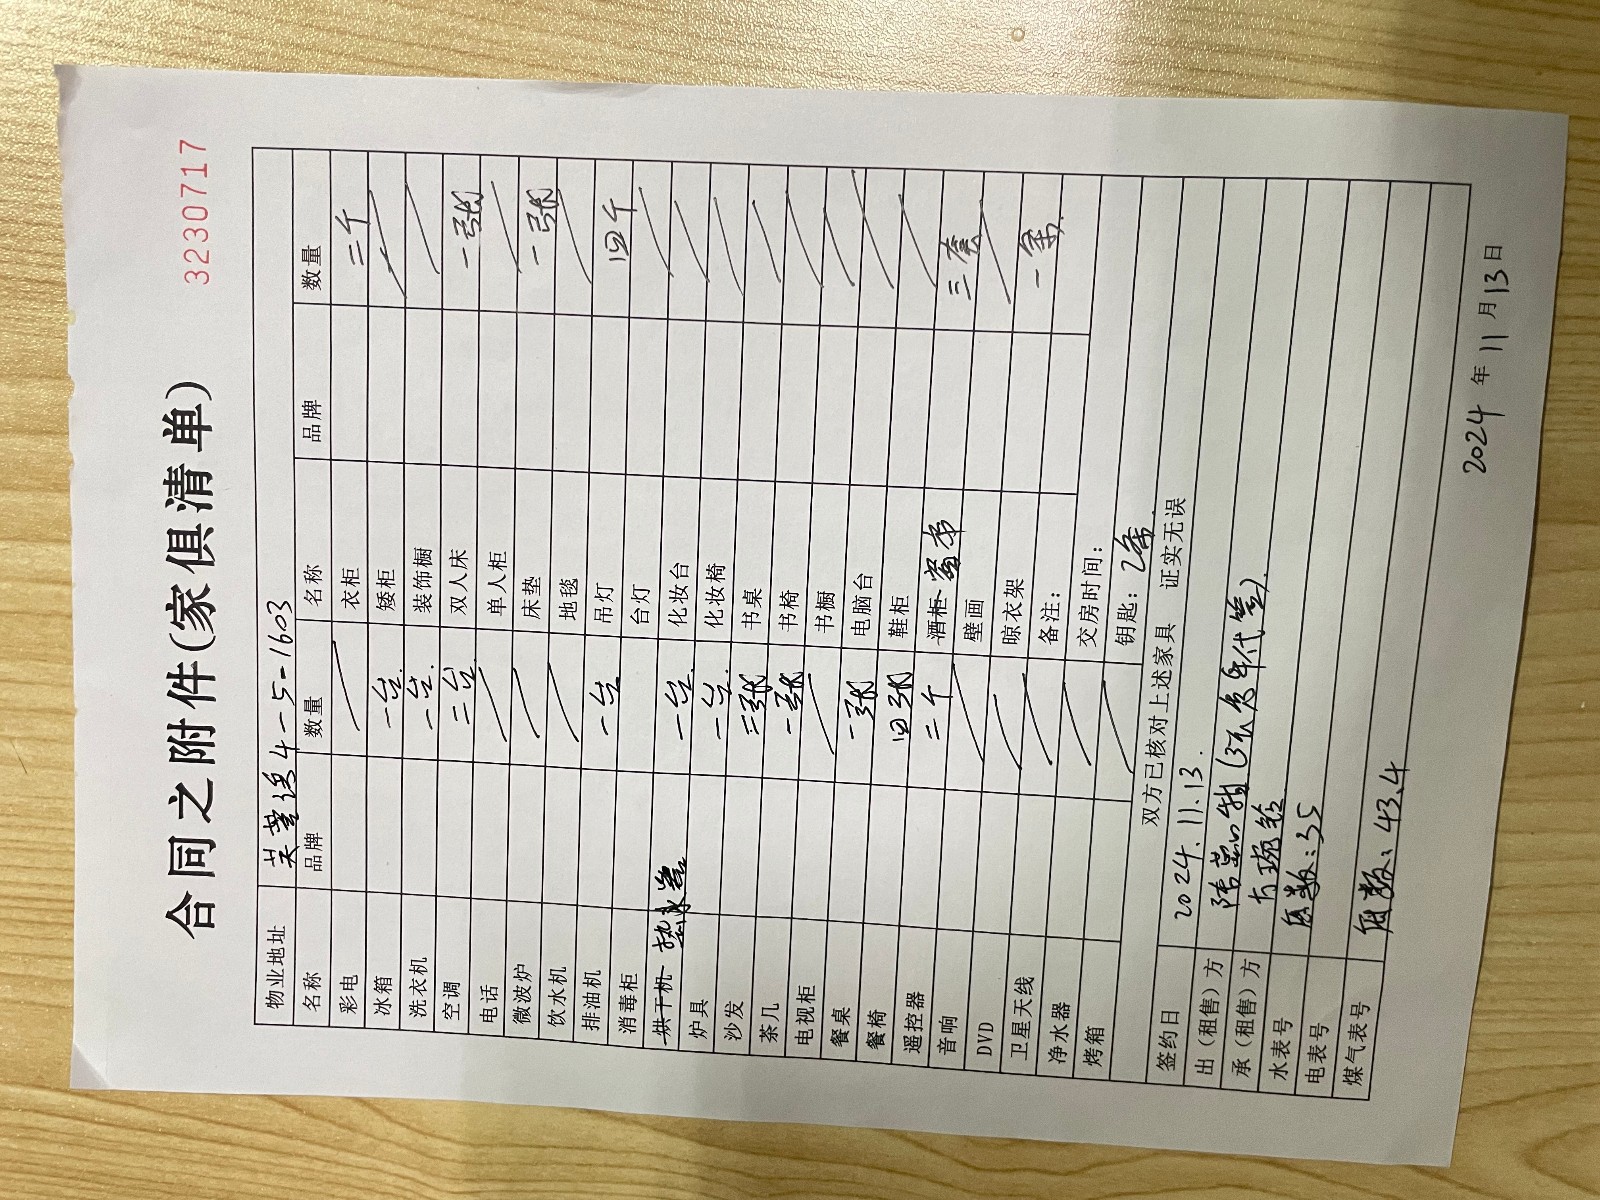 3230717
合同之附件(家俱清单)
物业地址 4-5-1603
名称 品牌 数量 名称 品牌 数量
彩电 衣柜 三个
冰箱 一台 矮柜
洗衣机 一台 装饰橱
空调 三台 双人床 一张
电话 单人柜
微波炉 床垫 一张
饮水机 地毯
排油机 一台 吊灯 四个
消毒柜 台灯
烘干机 热水器 一台 化妆台
炉具 一台 化妆椅
沙发 二张 书桌
茶几 一张 书椅
电视柜 书橱
餐桌 一张 电脑台
餐椅 四张 鞋柜
遥控器 二个 酒柜 窗帘 三套
音响 壁画
DVD 晾衣架 一条
卫星天线 备注：
净水器 交房时间：
烤箱 钥匙：2条.
双方已核对上述家具 证实无误
签约日 2024.11.13.
出（租售）方 代签).
承（租售）方
水表号 底数：35
电表号
煤气表号 底数：43.4
2024年11月13日